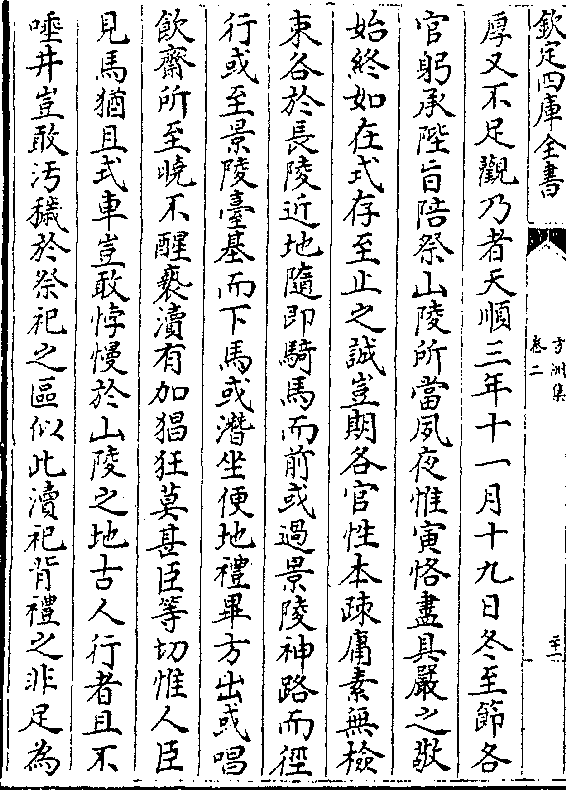 欽定四庫全書
方洲集
卷二
厚又不足觀乃者天順三年十一月十九日冬至節各
官躬承陛旨陪祭山陵所當夙夜惟寅恪盡具嚴之敬
始終如在式存至止之誠豈期各官性本疎庸素無檢
束各於長陵近地隨即騎馬而前或過景陵神路而徑
行或至景陵臺基而下馬或潛坐便地禮畢方出或唱
飲齋所至曉不醒褻瀆有加猖狂莫甚臣等切惟人臣
見馬猶且式車豈敢悖慢於山陵之地古人行者且不
唾井豈敢汚穢於祭祀之區似此瀆祀背禮之非足為